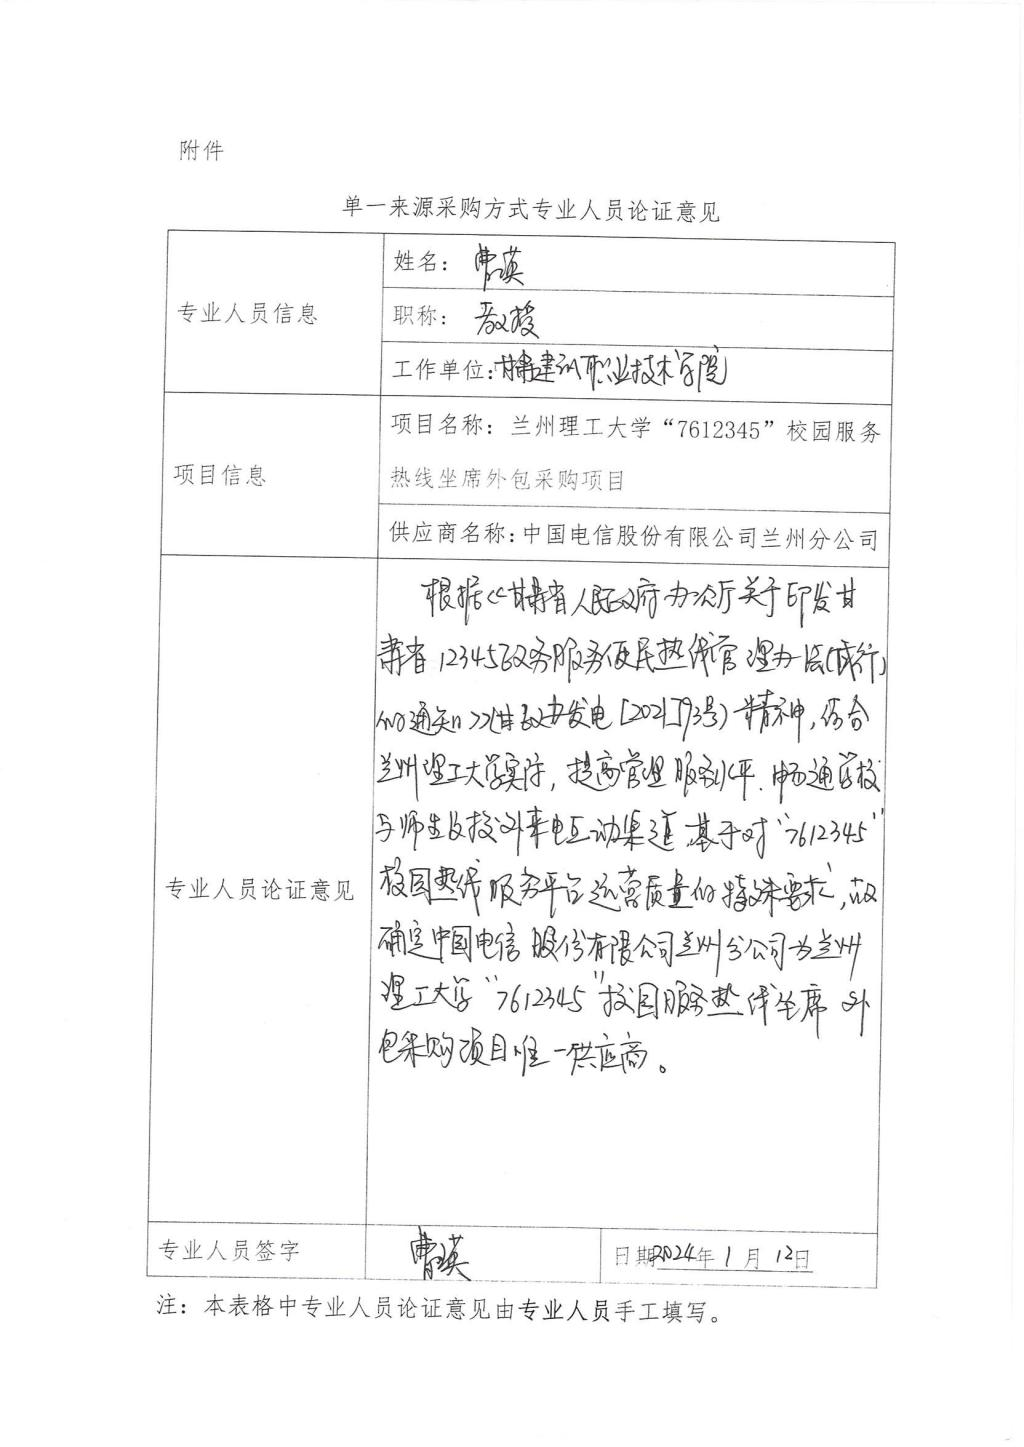 附件
单一来源采购方式专业人员论证意见
专业人员信息
姓名：曹瑛
职称：教授
工作单位：甘肃建筑职业技术学院
项目信息
项目名称：兰州理工大学“7612345”校园服务
热线坐席外包采购项目
供应商名称：中国电信股份有限公司兰州分公司
专业人员论证意见
根据《甘肃省人民政府办公厅关于印发甘
肃省12345政务服务便民热线管理办法(试行)
的通知》(甘政办发电[2021]93号)精神，结合
兰州理工大学实际，提高管理服务水平、畅通学校
与师生及校外来电互动渠道，基于对“7612345”
校园热线服务平台运营质量的特殊要求，故
确定中国电信股份有限公司兰州分公司为兰州
理工大学“7612345”校园服务热线坐席外
包采购项目唯一供应商。
专业人员签字
曹瑛
日期2024年1月12日
注：本表格中专业人员论证意见由专业人员手工填写。